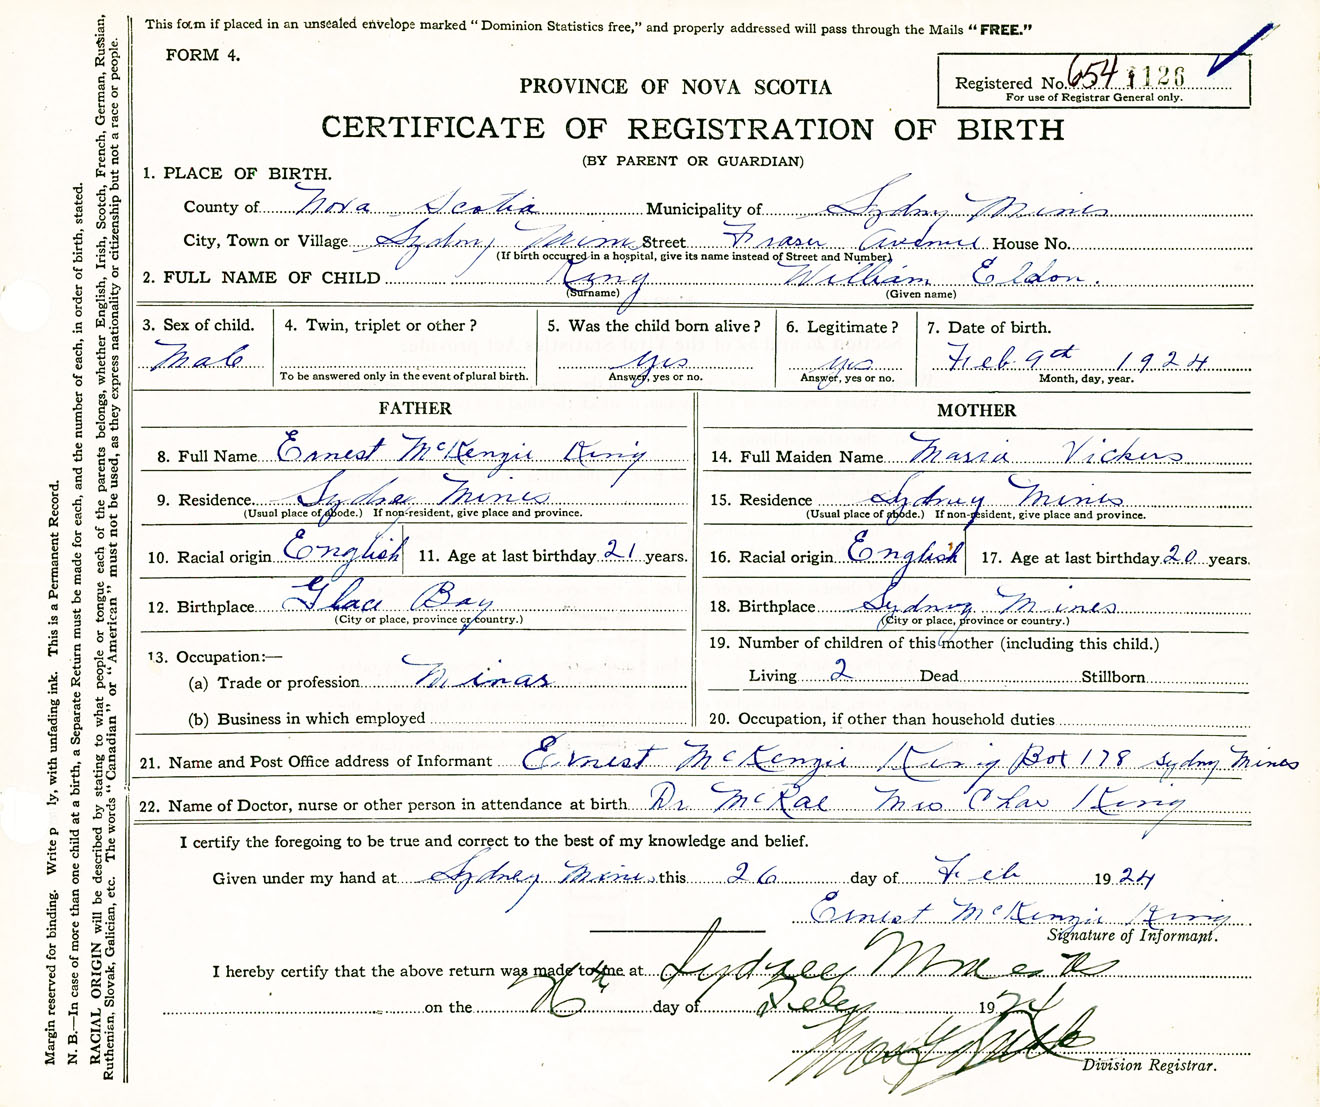 This form if placed in an unsealed envelope marked "Dominion Statistics free," and properly addressed will pass through the Mails "FREE."
FORM 4.
Registered No. 654 1126
For use of Registrar General only.
PROVINCE OF NOVA SCOTIA
CERTIFICATE OF REGISTRATION OF BIRTH
(BY PARENT OR GUARDIAN)
1. PLACE OF BIRTH.
County of Nova Scotia Municipality of Sydny Mines
City, Town or Village Sydny Mines Street Fraser Avenue House No.
(If birth occurred in a hospital, give its name instead of Street and Number)
2. FULL NAME OF CHILD King William Eldon.
(Surname) (Given name)
3. Sex of child. 4. Twin, triplet or other? 5. Was the child born alive? 6. Legitimate? 7. Date of birth.
Male yes yes Feb 9th 1924
To be answered only in the event of plural birth. Answer, yes or no. Answer, yes or no. Month, day, year.
FATHER MOTHER
8. Full Name Ernest McKenzie King 14. Full Maiden Name Maria Vickers
9. Residence Sydney Mines 15. Residence Sydney Mines
(Usual place of abode.) If non-resident, give place and province. (Usual place of abode.) If non-resident, give place and province.
10. Racial origin English 11. Age at last birthday 21 years. 16. Racial origin English 17. Age at last birthday 20 years.
12. Birthplace Glace Bay 18. Birthplace Sydney Mines
(City or place, province or country.) (City or place, province or country.)
13. Occupation:— 19. Number of children of this mother (including this child.)
(a) Trade or profession Minar Living 2 Dead Stillborn
(b) Business in which employed 20. Occupation, if other than household duties
21. Name and Post Office address of Informant Ernest McKenzie King Box 178 Sydny Mines
22. Name of Doctor, nurse or other person in attendance at birth Dr McRae Mrs Chas King
I certify the foregoing to be true and correct to the best of my knowledge and belief.
Given under my hand at Sydney Mines this 26 day of Feb 1924
Ernest McKenzie King
Signature of Informant.
I hereby certify that the above return was made to me at Sydney Mines
on the 26th day of Feby 1924
Division Registrar.
Margin reserved for binding. Write p ly, with unfading ink. This is a Permanent Record.
N. B.—In case of more than one child at a birth, a Separate Return must be made for each, and the number of each, in order of birth, stated.
RACIAL ORIGIN will be described by stating to what people or tongue each of the parents belongs, whether English, Irish, Scotch, French, German, Russian,
Ruthenian, Slovak, Galician, etc. The words "Canadian" or "American" must not be used, as they express nationality or citizenship but not a race or people.